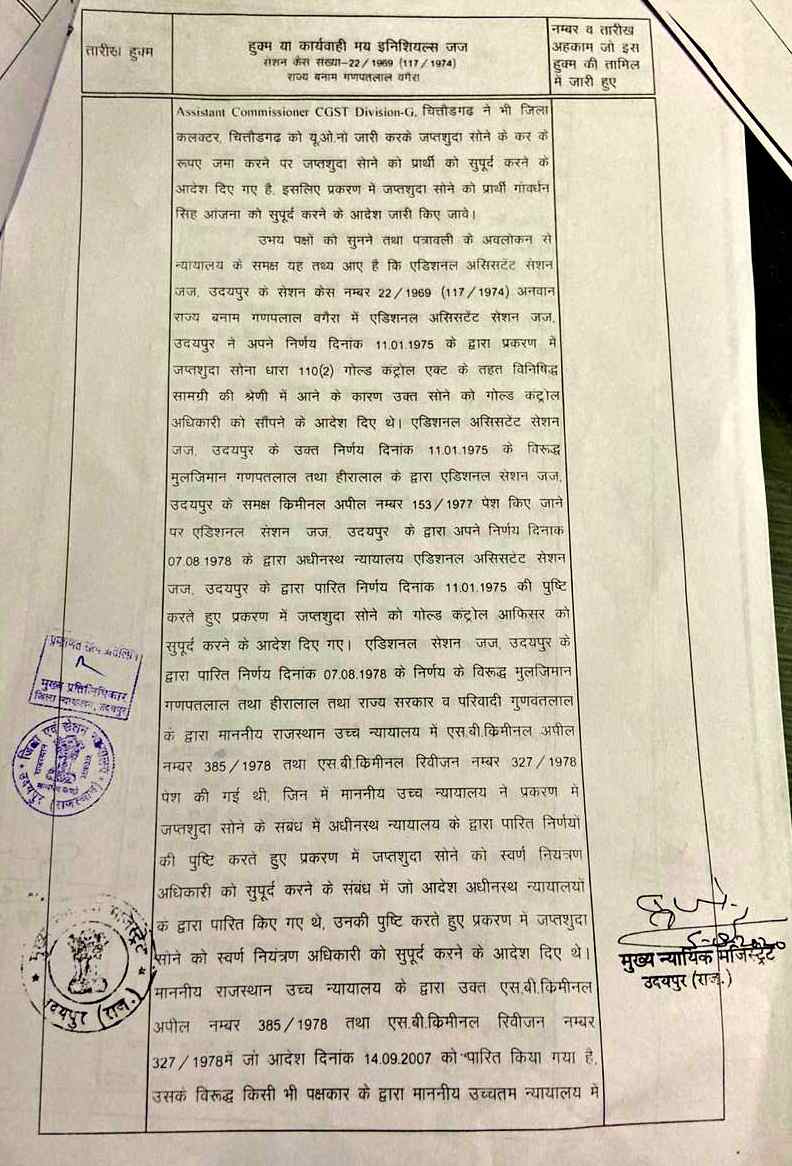 तारीख हुक्म
हुक्म या कार्यवाही मय इनिशियल्स जज
सेशन केस संख्या-22/1969 (117/1974)
राज्य बनाम गणपतलाल वगैरा
नम्बर व तारीख
अहकाम जो इस
हुक्म की तामिल
में जारी हुए
Assistant Commissioner CGST Division-G, चित्तौडगढ ने भी जिला
कलक्टर, चित्तौडगढ को यू.ओ.नो जारी करके जप्तशुदा सोने के कर के
रूपए जमा करने पर जप्तशुदा सोने को प्रार्थी को सुपूर्द करने के
आदेश दिए गए है, इसलिए प्रकरण में जप्तशुदा सोने को प्रार्थी गोवर्धन
सिंह आंजना को सुपूर्द करने के आदेश जारी किए जावे।
उभय पक्षों को सुनने तथा पत्रावली के अवलोकन से
न्यायालय के समक्ष यह तथ्य आए है कि एडिशनल असिसटेंट सेशन
जज, उदयपुर के सेशन केस नम्बर 22/1969 (117/1974) अनवान
राज्य बनाम गणपलाल वगैरा में एडिशनल असिसटेंट सेशन जज,
उदयपुर ने अपने निर्णय दिनांक 11.01.1975 के द्वारा प्रकरण में
जप्तशुदा सोना धारा 110(2) गोल्ड कंट्रोल एक्ट के तहत विनिषिद्ध
सामग्री की श्रेणी में आने के कारण उक्त सोने को गोल्ड कंट्रोल
अधिकारी को सौंपने के आदेश दिए थे। एडिशनल असिसटेंट सेशन
जज, उदयपुर के उक्त निर्णय दिनांक 11.01.1975 के विरूद्ध
मुलजिमान गणपतलाल तथा हीरालाल के द्वारा एडिशनल सेशन जज,
उदयपुर के समक्ष किमीनल अपील नम्बर 153/1977 पेश किए जाने
पर एडिशनल सेशन जज, उदयपुर के द्वारा अपने निर्णय दिनांक
07.08.1978 के द्वारा अधीनस्थ न्यायालय एडिशनल असिसटेंट सेशन
जज, उदयपुर के द्वारा पारित निर्णय दिनांक 11.01.1975 की पुष्टि
करते हुए प्रकरण में जप्तशुदा सोने को गोल्ड कंट्रोल आफिसर को
सुपूर्द करने के आदेश दिए गए। एडिशनल सेशन जज, उदयपुर के
द्वारा पारित निर्णय दिनांक 07.08.1978 के निर्णय के विरूद्ध मुलजिमान
गणपतलाल तथा हीरालाल तथा राज्य सरकार व परिवादी गुणवंतलाल
के द्वारा माननीय राजस्थान उच्च न्यायालय में एस.बी.किमीनल अपील
नम्बर 385/1978 तथा एस.बी.किमीनल रिवीजन नम्बर 327/1978
पेश की गई थी, जिन में माननीय उच्च न्यायालय ने प्रकरण में
जप्तशुदा सोने के संबंध में अधीनस्थ न्यायालय के द्वारा पारित निर्णयों
की पुष्टि करते हुए प्रकरण में जप्तशुदा सोने को स्वर्ण नियंत्रण
अधिकारी को सुपूर्द करने के संबंध में जो आदेश अधीनस्थ न्यायालयों
के द्वारा पारित किए गए थे, उनकी पुष्टि करते हुए प्रकरण में जप्तशुदा
सोने को स्वर्ण नियंत्रण अधिकारी को सुपूर्द करने के आदेश दिए थे।
माननीय राजस्थान उच्च न्यायालय के द्वारा उक्त एस.बी.किमीनल
अपील नम्बर 385/1978 तथा एस.बी.किमीनल रिवीजन नम्बर
327/1978में जो आदेश दिनांक 14.09.2007 को पारित किया गया है,
उसके विरूद्ध किसी भी पक्षकार के द्वारा माननीय उच्चतम न्यायालय में
मुख्य प्रतिलिपिकार
जिला न्यायालय, उदयपुर
जिला एवं सेशन न्यायालय
उदयपुर (राजस्थान)
मजिस्ट्रेट
उदयपुर (राज.)
मुख्य न्यायिक मजिस्ट्रेट
उदयपुर (राज.)